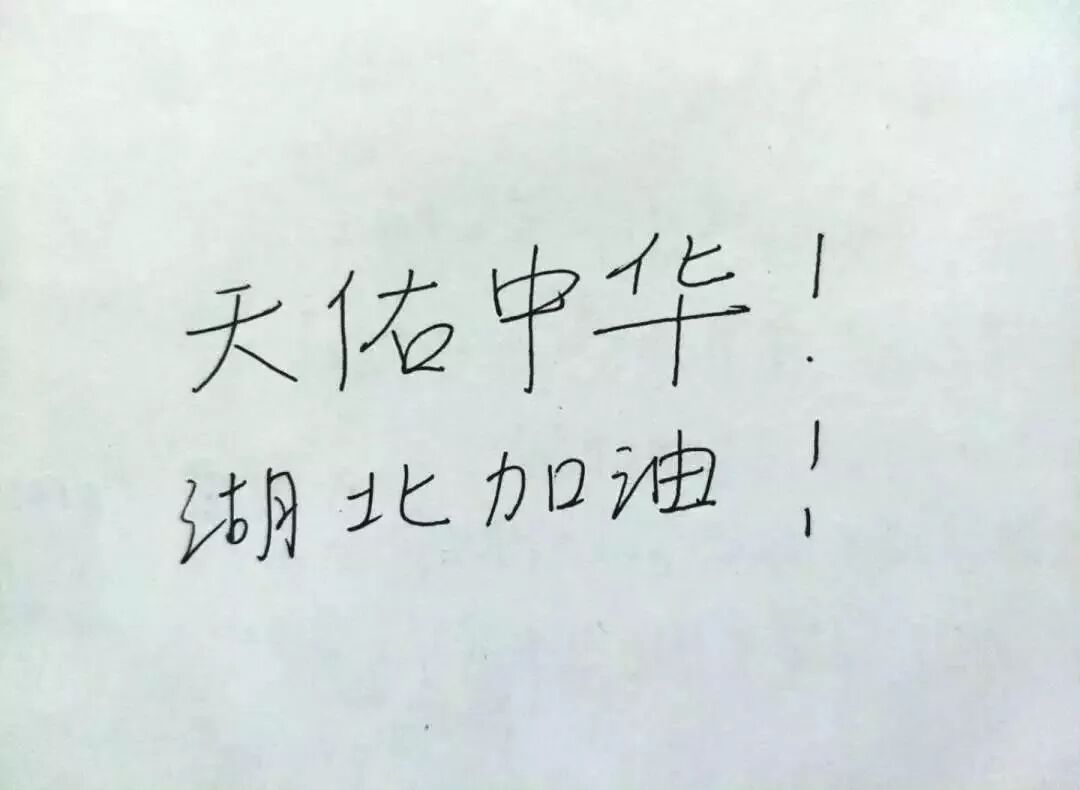 天佑中华！
湖北加油！